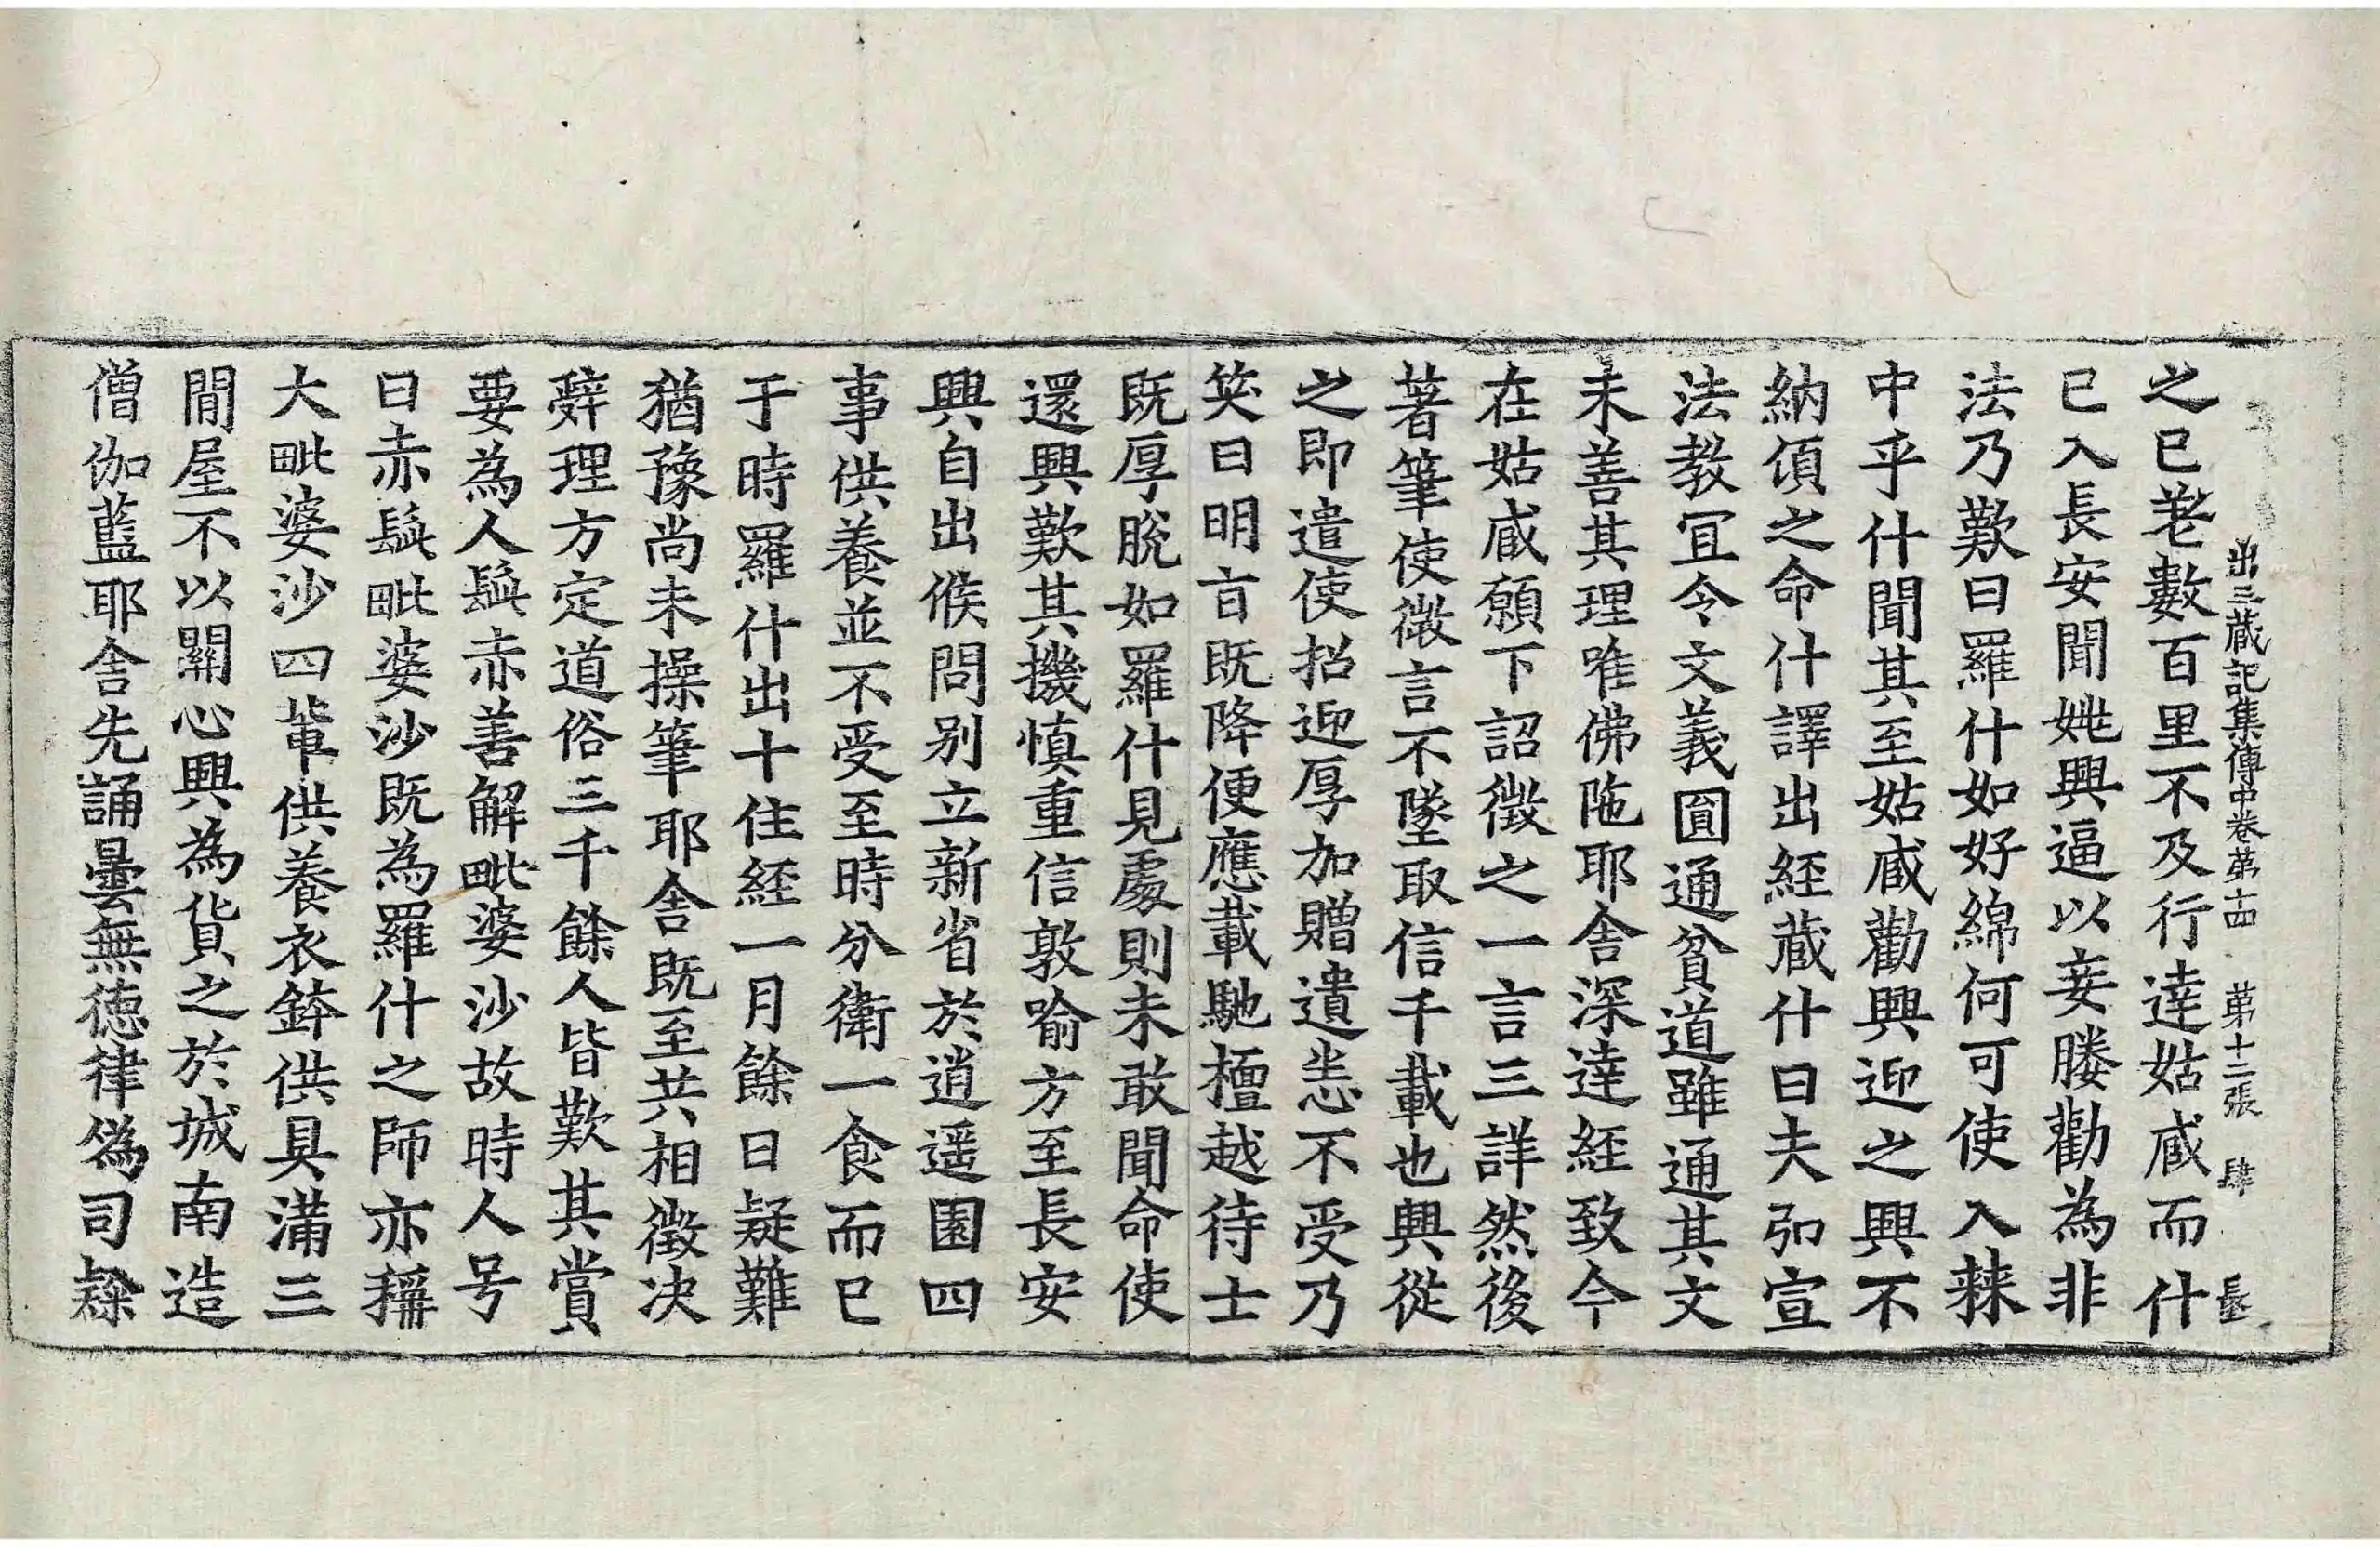 出三蔵記集傳中卷苐十四　苐十二張　肆
之已差數百里不及行逹姑臧而什
已入長安聞姚興逼以妾媵勸為非
法乃歎曰羅什如好綿何可使入棘
中乎什聞其至姑臧勸興迎之興不
納傾之命什譯出經蔵什曰夫弘宣
法教冝令文義圓通貧道雖通其文
未善其理唯佛陁耶舍深逹經致今
在姑臧願下詔徴之一言三詳然後
著筆使微言不墜取信千載也興從
之即遣使招迎厚加贈遺悉不受乃
笑曰明旨既降便應載馳檀越待士
既厚脫如羅什見處則未敢聞命使
還興歎其機慎重信敦喻方至長安
興自出候問别立新省於逍遥園四
事供養並不受至時分衛一食而已
于時羅什出十住經一月餘日疑難
猶豫尚未操筆耶舍既至共相徴决
辤理方定道俗三千餘人皆歎其賞
要為人髭赤善解毗婆沙故時人号
曰赤髭毗婆沙既為羅什之師亦稱
大毗婆沙四軰供養衣鉢供具滿三
閒屋不以關心興為貨之於城南造
僧伽藍耶舍先誦曇無德律僞司隸